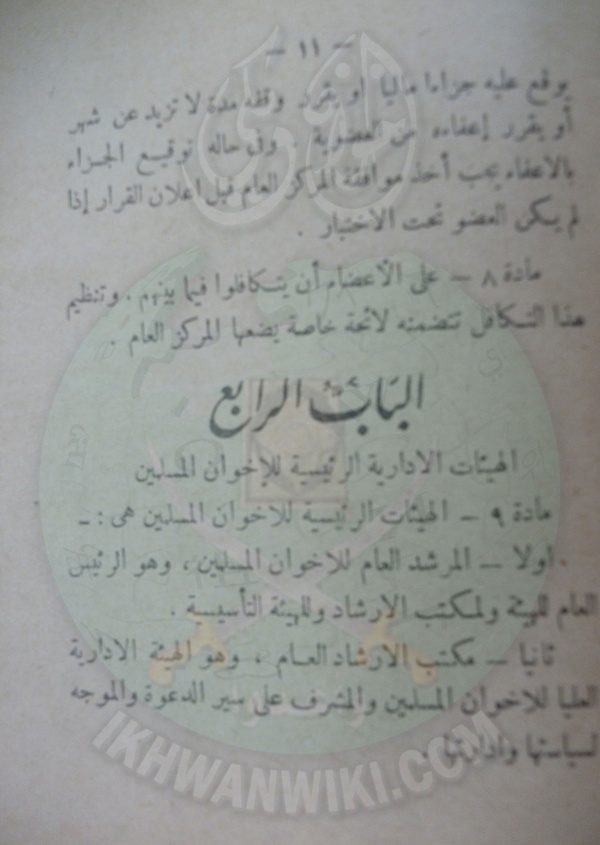 — ١١ —
يوقع عليه جزاءا ماليا او يقرر وقفه مدة لا تزيد عن شهر
أو يقرر إعفاءه من العضوية . وفى حاله توقيع الجزاء
بالاعفاء يجب أخذ موافقة المركز العام قبل اعلان القرار إذا
لم يكن العضو تحت الاختبار .
مادة ٨ — على الأعضاء أن يتكافلوا فيما بينهم . وتنظيم
هذا التكافل تتضمنه لائحة خاصة يضعها المركز العام .
الباب الرابع
الهيئات الادارية الرئيسية للإخوان المسلمين
مادة ٩ — الهيئات الرئيسية للاخوان المسلمين هى : ـ
اولا — المرشد العام للاخوان المسلمين ، وهو الرئيس
العام للهيئة ولمكتب الارشاد وللهيئة التأسيسية .
ثانيا — مكتب الارشاد العام ، وهو الهيئة الادارية
العليا للاخوان المسلمين والمشرف على سير الدعوة والموجه
لسياستها وادارتها .
IKHWANWIKI.COM